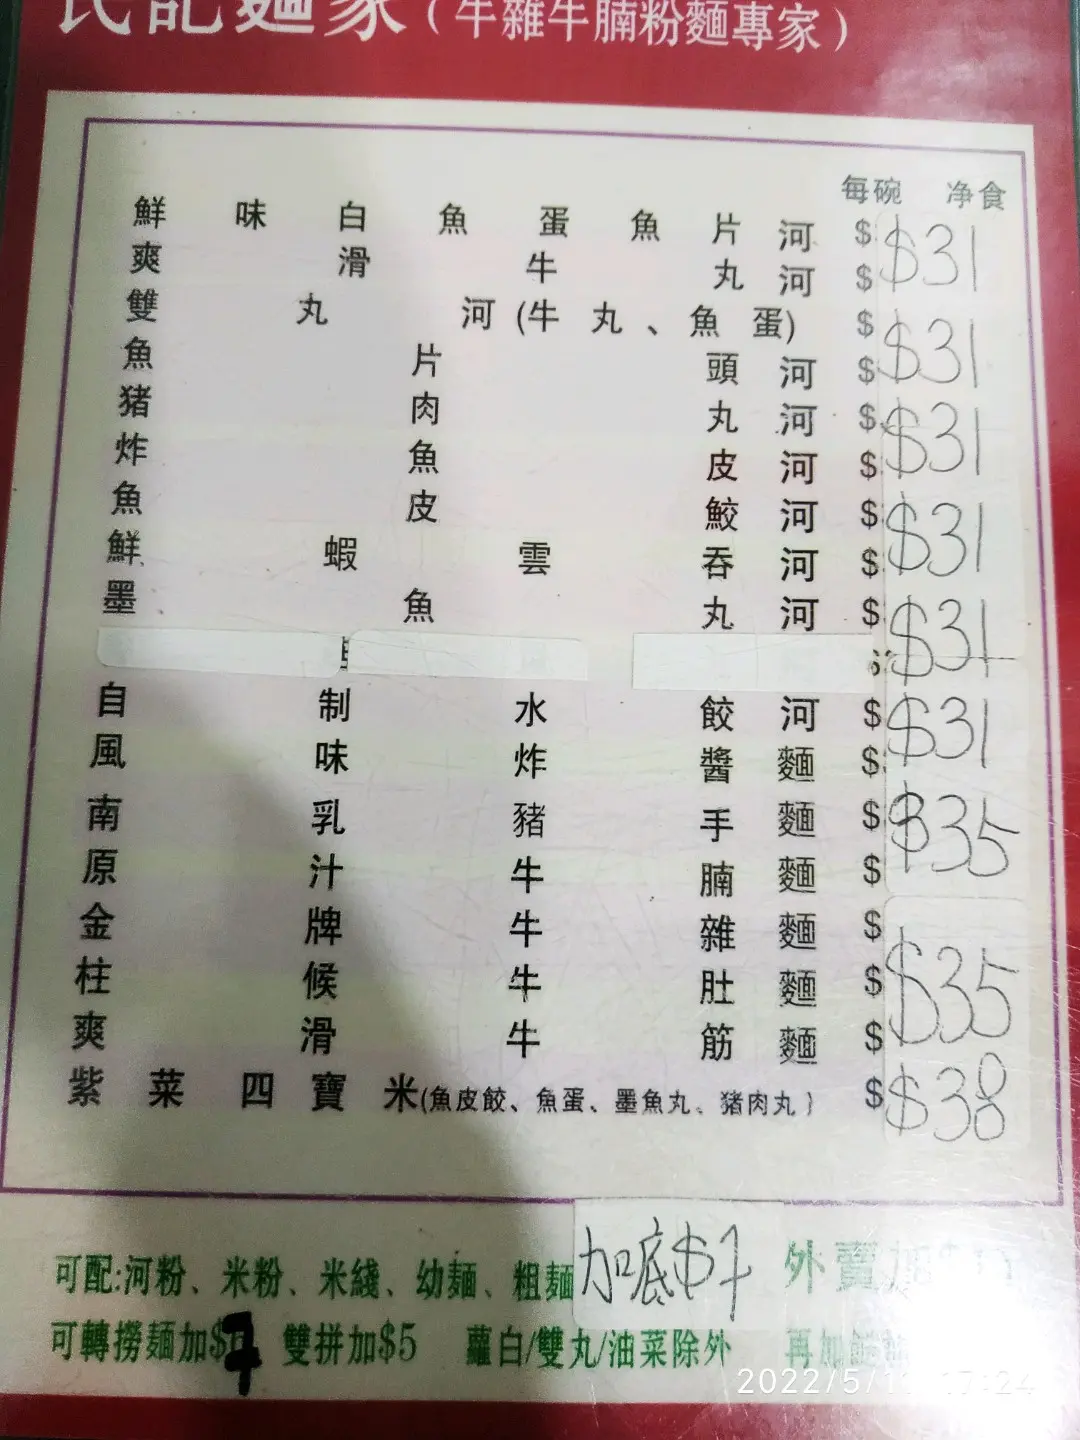 民記麵家(牛雜牛腩粉麵專家)
每碗 净食
鮮味白魚蛋魚片河 $ $31
爽滑牛丸河 $
雙丸河(牛丸、魚蛋) $
魚片頭河 $ $31
猪肉丸河 $
炸魚皮河 $ $31
魚皮鮫河 $
鮮蝦雲吞河 $ $31
墨魚丸河 $
$31
自制水餃河 $ $31
風味炸醬麵 $
南乳豬手麵 $ $35
原汁牛腩麵 $
金牌牛雜麵 $
柱候牛肚麵 $ $35
爽滑牛筋麵 $
紫菜四寶米(魚皮餃、魚蛋、墨魚丸、猪肉丸) $ $38
可配:河粉、米粉、米綫、幼麺、粗麺 加底$7 外賣加$
可轉撈麺加$7 雙拼加$5 蘿白/雙丸/油菜除外 再加
2022/5/1 17:24